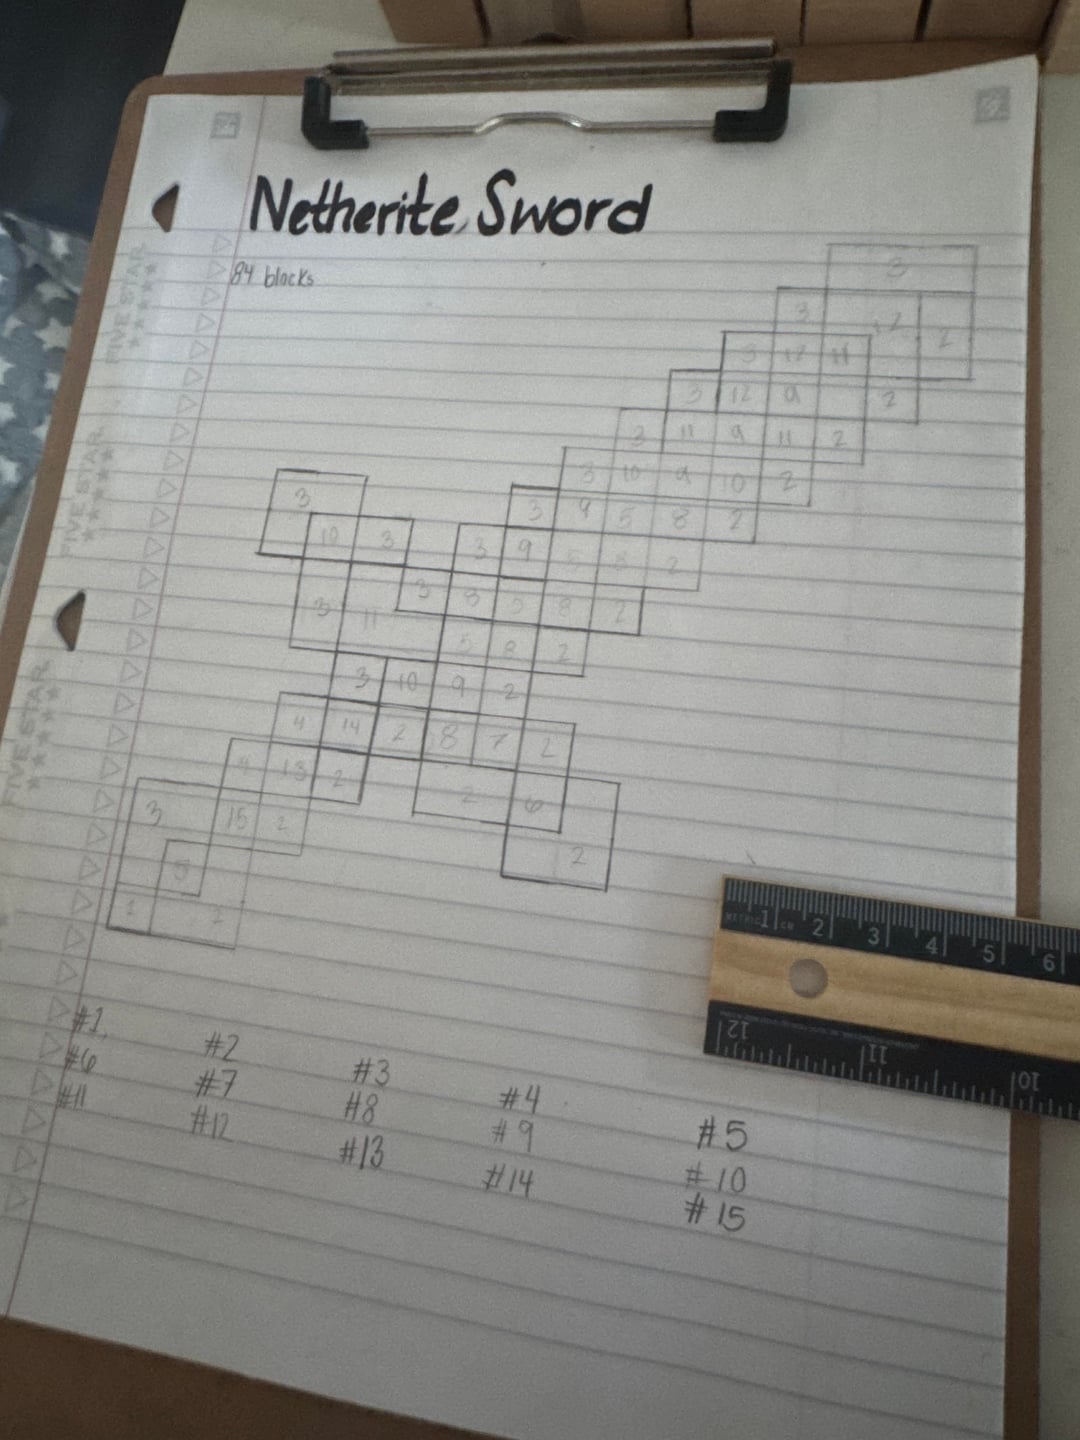 Netherite Sword
84 blocks
3
3 12 2
3 12 11
3 12 9 2
3 11 9 11 2
3 10 9 10 2
3
3 9 5 8 2
10 3 3 9 5 8 2
3 11 3 8 5 8 2
5 8 2
3 10 9 2
4 14 2 8 7 2
4 13 2 2 6
3 15 2
5 2
1 2
#1 #2 #3 #4 #5
#6 #7 #8 #9 #10
#11 #12 #13 #14 #15
FIVE STAR
FIVE STAR
FIVE STAR
METRIC 1 CM 2 3 4 5 6
12 11 10